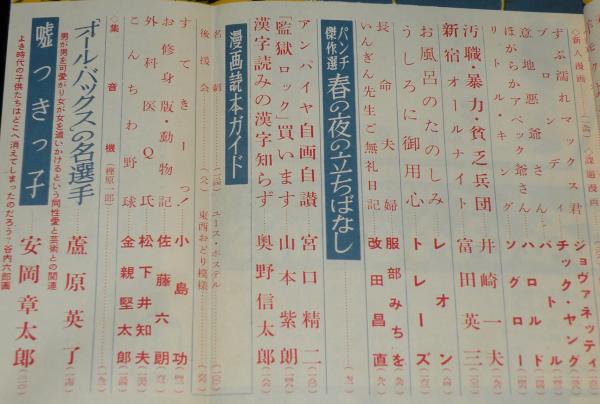 ◇新人漫画
(一六四)
◇課題漫画
ずぶ濡れマックス君 ジョヴァネッティ
ブロンディ チック・ヤング
意地悪爺さん バトル
ほがらかアベック爺さん ハロルド
リトル・キング ソグロー
汚職・暴力・貧乏兵団 井崎一夫
新宿オールナイト 富田英三
お風呂のたのしみ レオン
うしろに御用心 トレーズ
長命夫婦 服部みちを
いんぎん先生ご無礼日記 改田昌直
パンチ傑作選 春の夜の立ちばなし
アンパイヤ自画自讃 宮口精二
「監獄ロック」買います 山本紫朗
漢字読みの漢字知らず 奥野信太郎
漫画読本ガイド
名刺 ユース・ホステル
後援会 東西おどり模様
すてきーっ! 小島功
お修身版・動物記 佐藤六朗
外科医Q氏 松下井知夫
こんちわ野球 金親堅太郎
◇集音機 (樫原一郎)
「オール・バックス」の名選手 蘆原英了
男が男を可愛がり女が女を追いかけるという同性愛と芸術との関連
嘘つきっ子 安岡章太郎
よき時代の子供たちはどこへ消えてしまったのだろう? 谷内六郎画